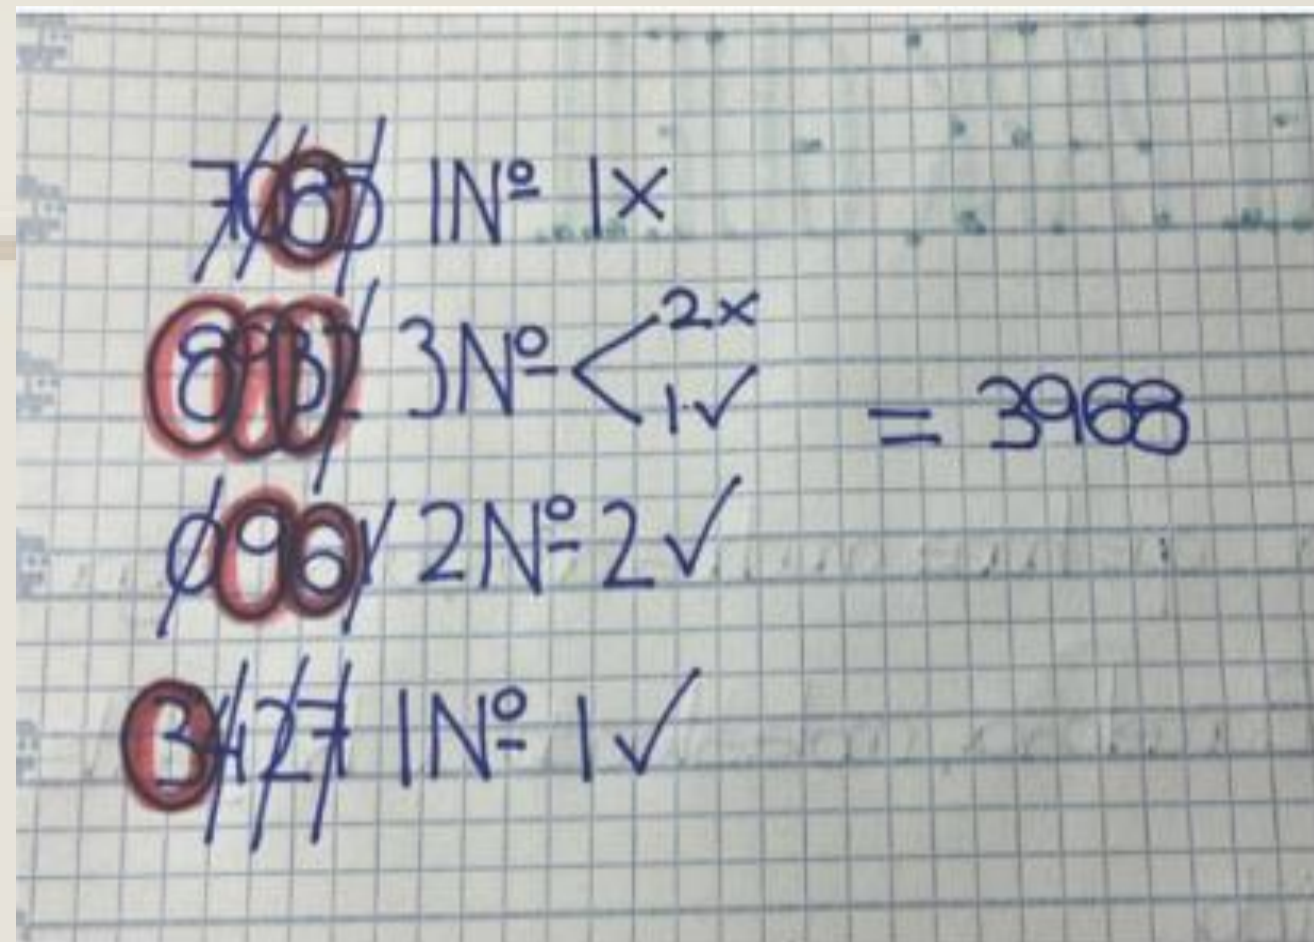 7065 1Nº 1x
8932 3Nº 2x
1✓
= 3968
0961 2Nº 2✓
3427 1Nº 1✓